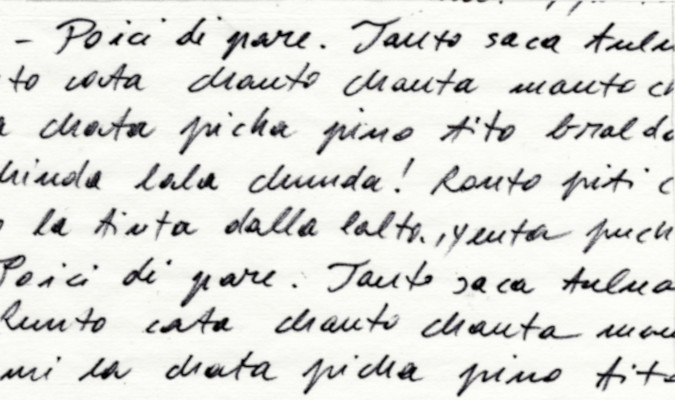 - Poici di pare. Tanto saca tulna
to cata chanto chanta manto ch
a chata picha pino tito braldo
hinda lala chunda! Ronto piti c
la tinta dalla lalto., yenta puch
Poici di pare. Tanto saca tulna
Runto cata chanto chanta man
mi la chata picha pino tito